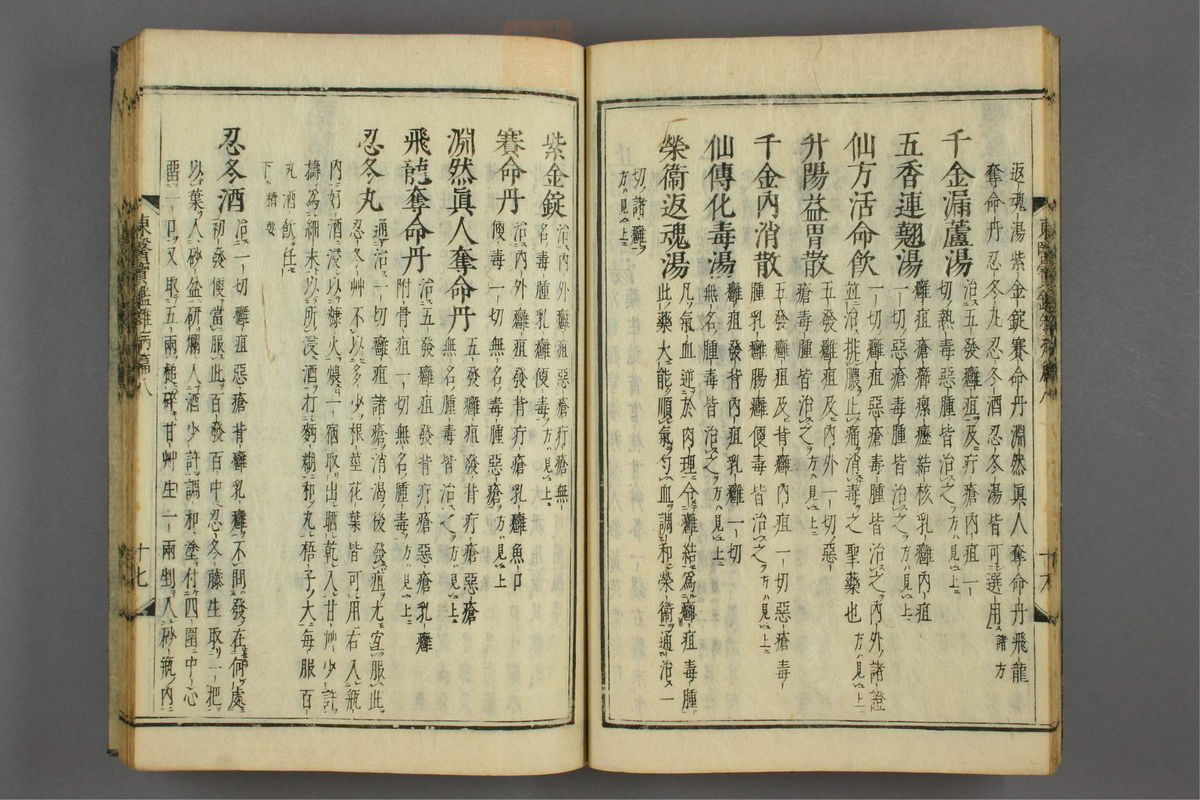 返魂湯紫金錠賽命丹淵然眞人奪命丹飛龍
奪命丹忍冬丸忍冬酒忍冬湯皆可選用諸方
千金漏蘆湯 治五發癰疽及疔瘡內疽一
切熱毒惡腫皆治之方見上
五香連翹湯 癰疽瘡癤瘰癧結核乳癰內疽
一切惡瘡毒腫皆治之方見上
仙方活命飮 一切癰疽惡瘡毒腫皆治之內外諸證
並治排膿止痛消毒之聖藥也方見上
升陽益胃散 五發癰疽及內外一切惡
瘡毒腫皆治之方見上
千金內消散 五發及背癰內疽一切惡瘡毒
腫乳癰腸癰便毒皆治之方見上
仙傳化毒湯 癰疽發背內疽乳癰一切
無名腫毒皆治之方見上
榮衞返魂湯 此藥大能順氣勻血調和榮衞通治一
凡氣血逆於肉理令癰結爲癰疽毒腫
切諸癰
方見上
紫金錠 治內外癰疽惡瘡疔瘡無
名毒腫乳癰便毒方見上
賽命丹 治內外癰疽發背疔瘡乳癰魚口
便毒一切無名毒腫惡瘡方見上
淵然眞人奪命丹 五發癰疽發背疔瘡惡瘡
無名腫毒皆治之方見上
飛龍奪命丹 治五發癰疽發背疔瘡惡瘡乳癰
附骨疽一切無名腫毒方見上
忍冬丸 通治一切癰疽諸瘡消渴後發疽尤宜服此
忍冬艸不以多少根莖花葉皆可用右入甁
內好酒浸以糠火煨一宿取出晒乾入甘艸少許
擣爲細末以所浸酒打麪糊和丸梧子大每服百
丸酒飮任
下精要
忍冬酒 治一切癰疽惡瘡背癰乳癰不問發在何處
初發便當服此百發百中忍冬藤生取一把
以葉入砂盆硏爛入酒少許調和塗付四圍中心
留一口又取五兩槌碎甘艸生一兩剉入砂甁內
東醫寶鑑雜病篇八
十七